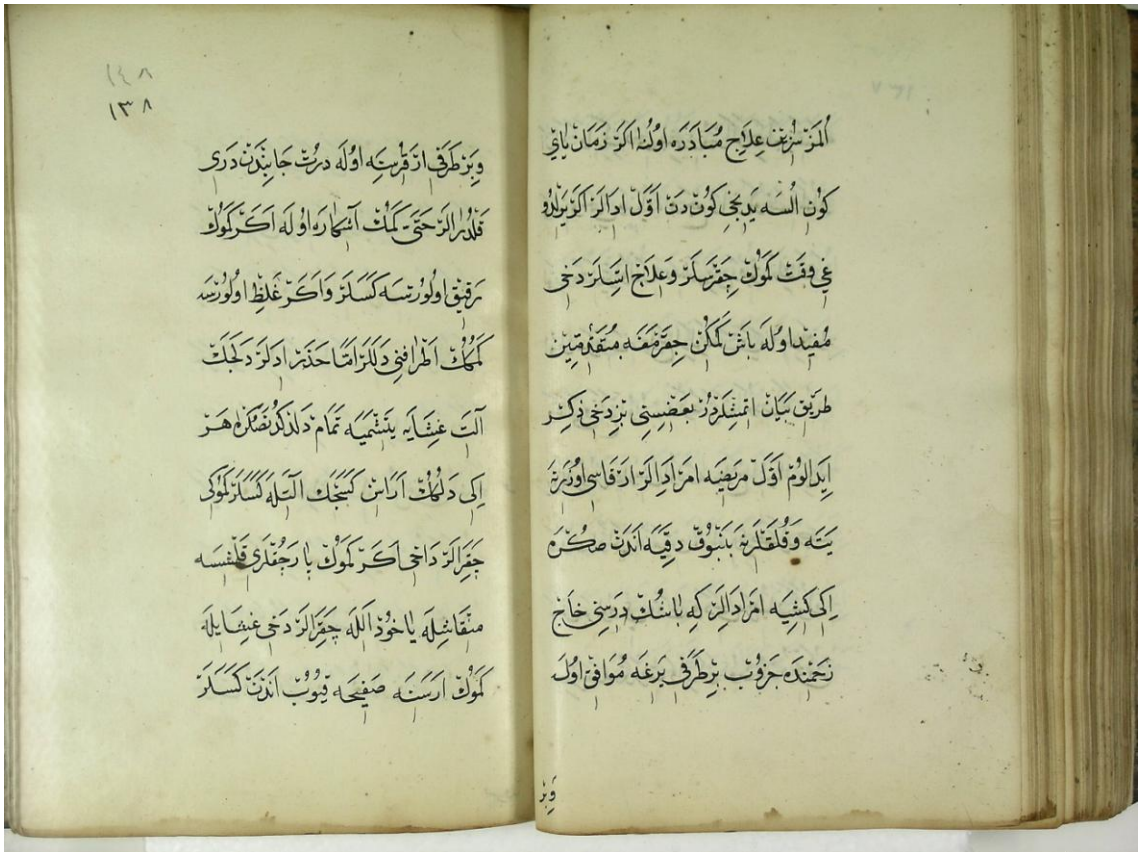 اُلمَز سُرعت عِلاج مُبَادَرَه اوُلُنه اكَر زَمَان ياي
كوُن السه يدِنجى كوُن دَن اَوَّل ادالَر اكَر يَرلدُو
غي وقت كموُك چقرسلر وَعِلاج اتسلر دَخى
مُفيد اوُله باش كمكن چقرمغه متقدّمين
طريق بَيَان اتمشلردُر بعضيسنى بز دَخى ذكر
ايدالوُم اوّل مريضه امر ادالر ارقاسى اوُزره
يته وَقُلقلرنه پنبوُق دقيه اندن صكره
اِكى كشيه امر ادالر كه باشك درسنى خاچ
زخمنده جزوُب بر طرفى برغه مُوَافق اوُله
وبر
١٤٨
١٣٨
وَبِر طَرَفى ارقرسته اوُله درت جانبندن دَرى
قلدرالر حتّى كمك آشكاره اوُله اكر كموُك
رَقيق اولورسه كسلر وَاكر غَليظ اولورسه
كمكك اطرافنى دلكر امّا حذر ادلر دلجك
آلت غشايه يتشميه تمام دلدكدنصكره هر
اِكى دلوكك اراسن كسجك التله كسلر كموكى
چقرالر داخى اكر كموُك پارجقلرى قلمشسه
منقاشله ياخوُد الله چقرالر دخى غشايله
كموُك ارسنه صفيحه قيوُب اندن كسلر